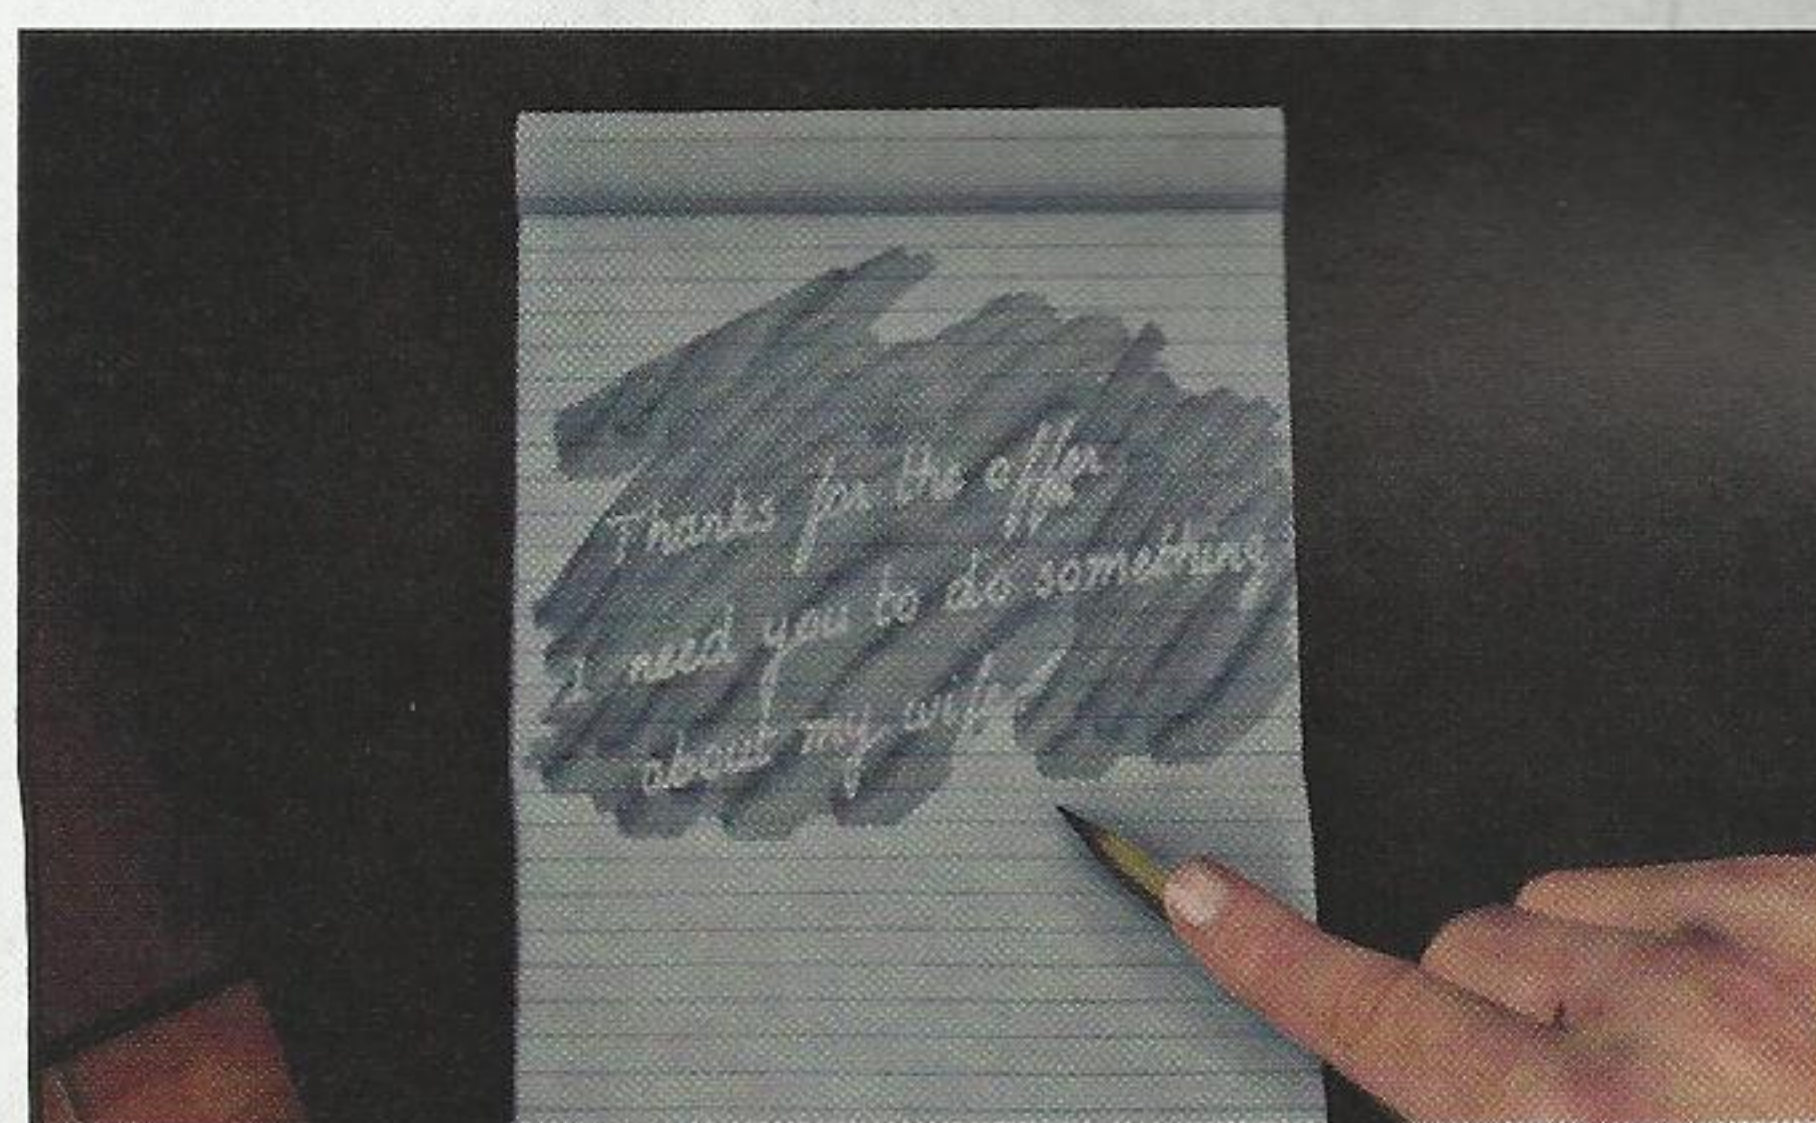 Thanks for the offer
I need you to do something
about my wife